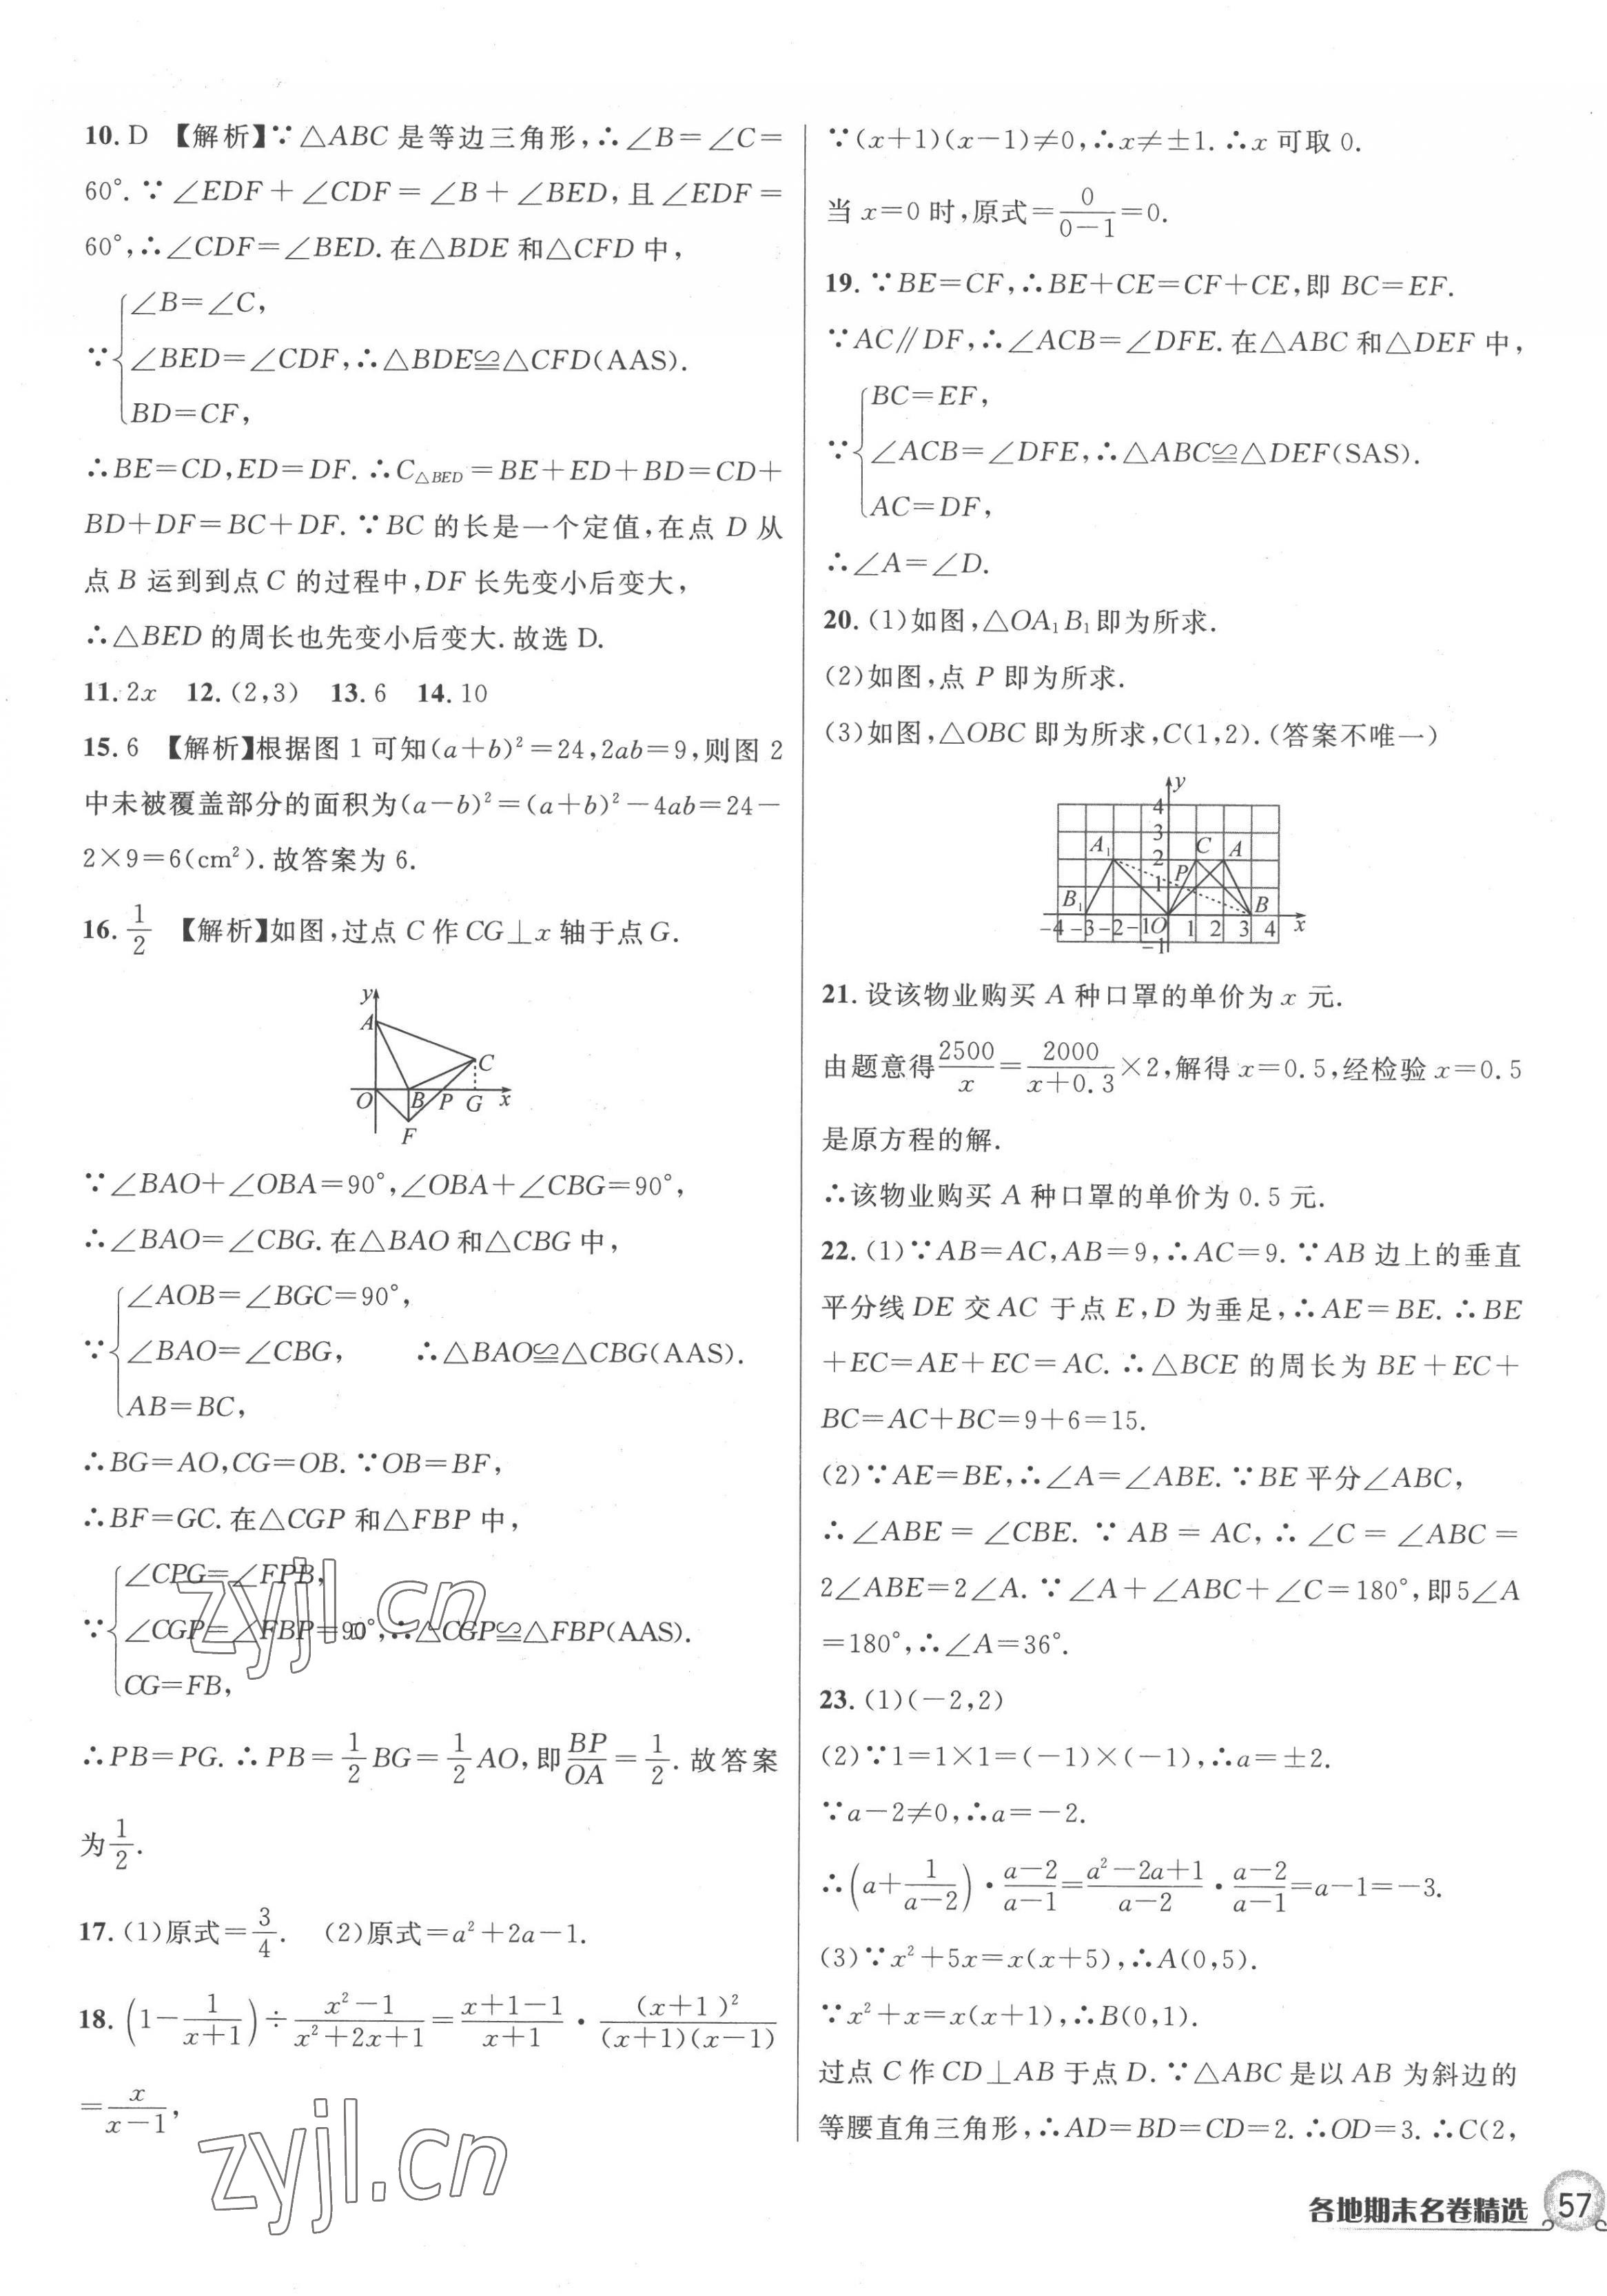 10. D 【解析】∵△ABC 是等边三角形,∴∠B=∠C=
60°. ∵∠EDF+∠CDF=∠B+∠BED,且∠EDF=
60°,∴∠CDF=∠BED. 在△BDE 和△CFD 中,
∠B=∠C,
∵{∠BED=∠CDF,∴△BDE≌△CFD(AAS).
BD=CF,
∴BE=CD,ED=DF. ∴C△BED=BE+ED+BD=CD+
BD+DF=BC+DF. ∵BC 的长是一个定值,在点 D 从
点 B 运到到点 C 的过程中,DF 长先变小后变大,
∴△BED 的周长也先变小后变大. 故选 D.
11. 2x 12. (2,3) 13. 6 14. 10
15. 6 【解析】根据图 1 可知(a+b)²=24,2ab=9,则图 2
中未被覆盖部分的面积为(a-b)²=(a+b)²-4ab=24-
2×9=6(cm²). 故答案为 6.
16. 1/2 【解析】如图,过点 C 作 CG⊥x 轴于点 G.
y
A
C
O B P G x
F
∵∠BAO+∠OBA=90°,∠OBA+∠CBG=90°,
∴∠BAO=∠CBG. 在△BAO 和△CBG 中,
∠AOB=∠BGC=90°,
∵{∠BAO=∠CBG, ∴△BAO≌△CBG(AAS).
AB=BC,
∴BG=AO,CG=OB. ∵OB=BF,
∴BF=GC. 在△CGP 和△FBP 中,
∠CPG=∠FPB,
∵{∠CGP=∠FBP=90°,∴△CGP≌△FBP(AAS).
CG=FB,
∴PB=PG. ∴PB=1/2 BG=1/2 AO,即 BP/OA=1/2. 故答案
为 1/2.
17. (1)原式=3/4. (2)原式=a²+2a-1.
18. (1-1/(x+1))÷(x²-1)/(x²+2x+1)=(x+1-1)/(x+1)·(x+1)²/((x+1)(x-1))
=x/(x-1),
zyjl.cn
zyjl.cn
∵(x+1)(x-1)≠0,∴x≠±1. ∴x 可取 0.
当 x=0 时,原式=0/(0-1)=0.
19. ∵BE=CF,∴BE+CE=CF+CE,即 BC=EF.
∵AC∥DF,∴∠ACB=∠DFE. 在△ABC 和△DEF 中,
BC=EF,
∵{∠ACB=∠DFE,∴△ABC≌△DEF(SAS).
AC=DF,
∴∠A=∠D.
20. (1)如图,△OA₁B₁即为所求.
(2)如图,点 P 即为所求.
(3)如图,△OBC 即为所求,C(1,2). (答案不唯一)
y
4
3
A₁ 2 C A
1 P
B₁ B
-4 -3 -2 -1 O 1 2 3 4 x
-1
21. 设该物业购买 A 种口罩的单价为 x 元.
由题意得 2500/x=2000/(x+0.3)×2,解得 x=0.5,经检验 x=0.5
是原方程的解.
∴该物业购买 A 种口罩的单价为 0.5 元.
22. (1)∵AB=AC,AB=9,∴AC=9. ∵AB 边上的垂直
平分线 DE 交 AC 于点 E,D 为垂足,∴AE=BE. ∴BE
+EC=AE+EC=AC. ∴△BCE 的周长为 BE+EC+
BC=AC+BC=9+6=15.
(2)∵AE=BE,∴∠A=∠ABE. ∵BE 平分∠ABC,
∴∠ABE=∠CBE. ∵AB=AC,∴∠C=∠ABC=
2∠ABE=2∠A. ∵∠A+∠ABC+∠C=180°,即 5∠A
=180°,∴∠A=36°.
23. (1)(-2,2)
(2)∵1=1×1=(-1)×(-1),∴a=±2.
∵a-2≠0,∴a=-2.
∴(a+1/(a-2))·(a-2)/(a-1)=(a²-2a+1)/(a-2)·(a-2)/(a-1)=a-1=-3.
(3)∵x²+5x=x(x+5),∴A(0,5).
∵x²+x=x(x+1),∴B(0,1).
过点 C 作 CD⊥AB 于点 D. ∵△ABC 是以 AB 为斜边的
等腰直角三角形,∴AD=BD=CD=2. ∴OD=3. ∴C(2,
各地期末名卷精选 57